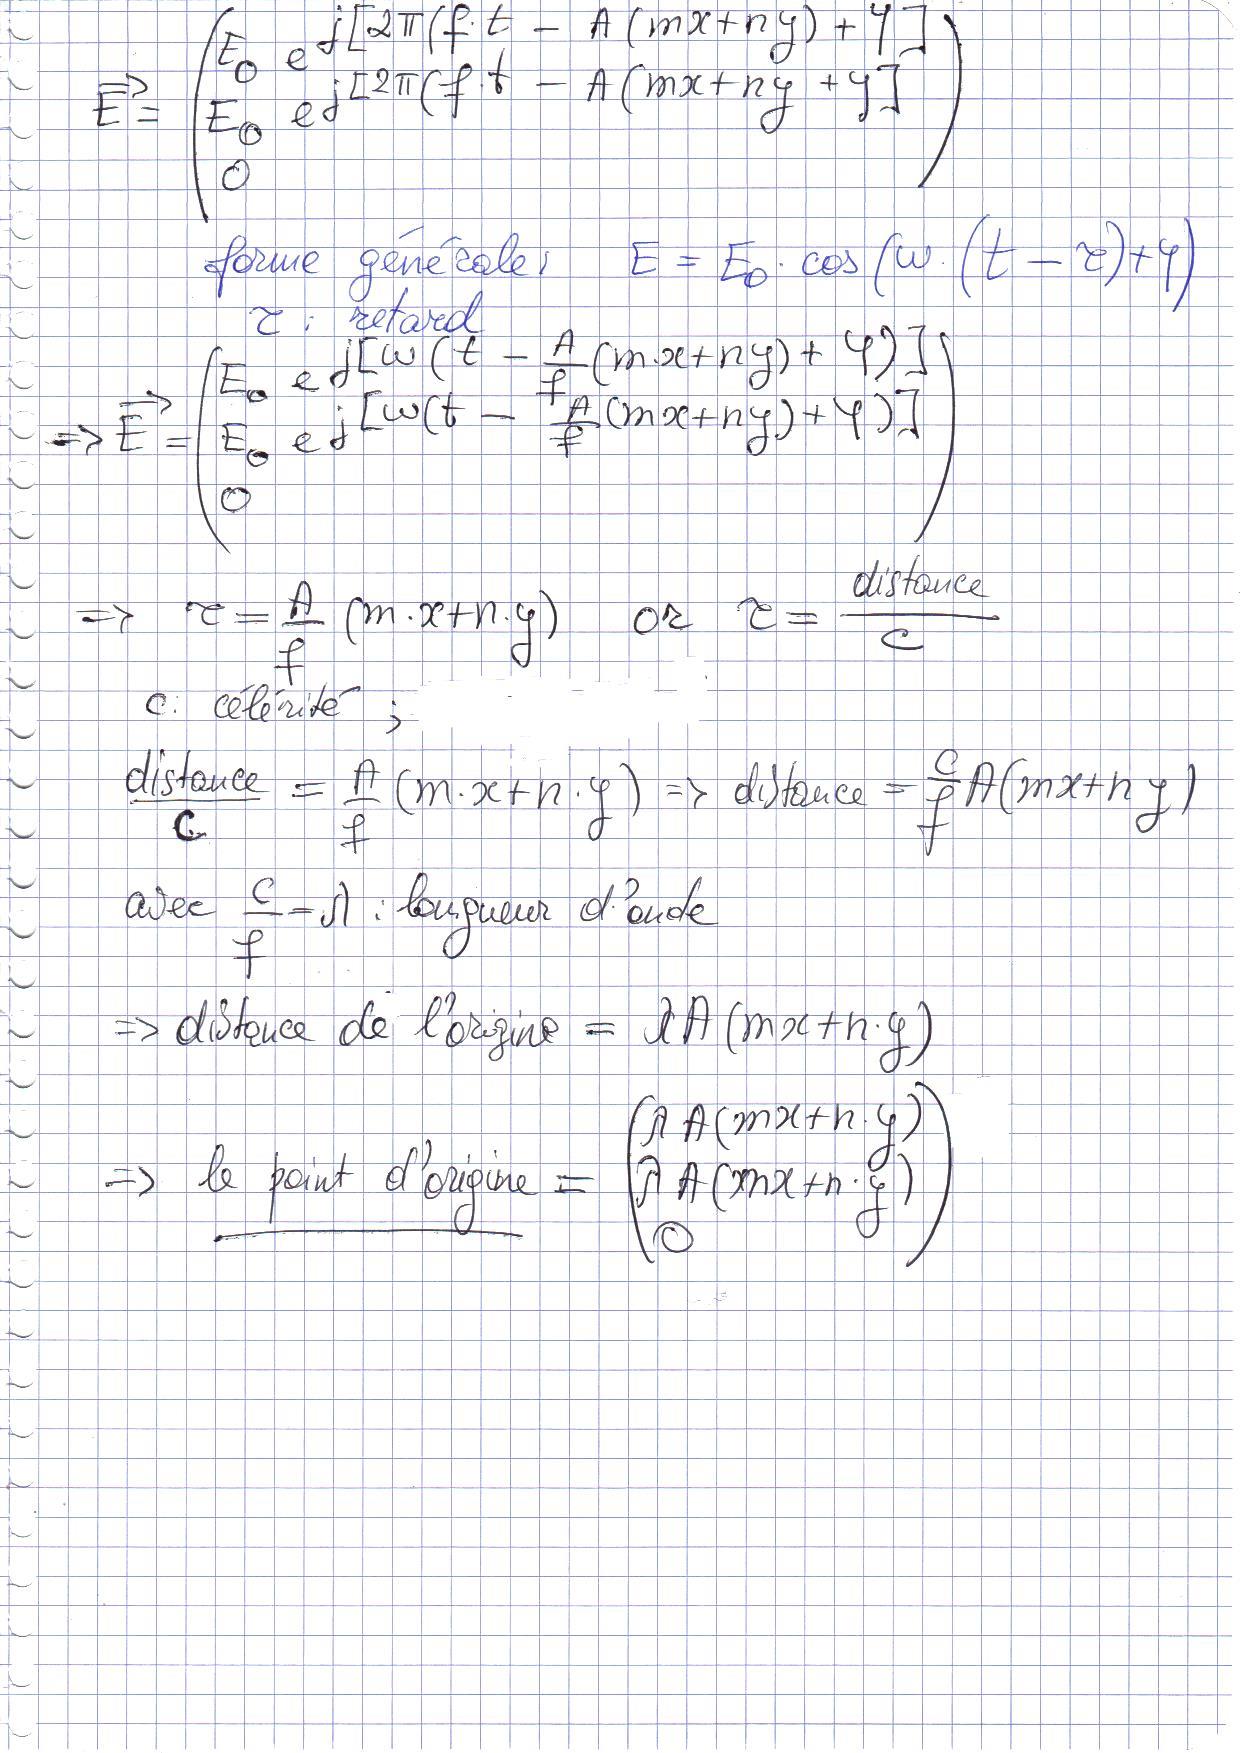 E⃗ = ( E₀ e^j[2π(f·t − A(mx+ny)+φ]
E₀ e^j[2π(f·t − A(mx+ny+φ]
0 )
forme générale: E = E₀ · cos(ω·(t − τ)+φ)
τ : retard
=> E⃗ = ( E₀ e^j[ω(t − A/f (m·x+ny)+φ)]
E₀ e^j[ω(t − A/f (mx+ny)+φ)]
0 )
=> τ = A/f (m·x+n·y) or τ = distance/c
c: célérité ;
distance/c = A/f (m·x+n·y) => distance = c/f A(mx+ny)
avec c/f = λ : longueur d'onde
=> distance de l'origine = λA(mx+n·y)
=> le point d'origine = ( λA(mx+n·y)
λA(mx+n·y)
0 )